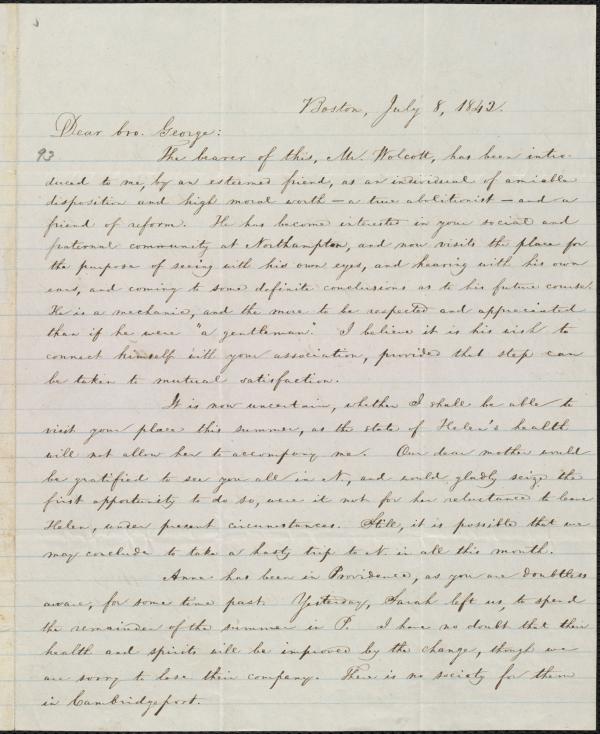 Boston, July 8, 1842.
Dear bro. George:
93
The bearer of this, Mr. Wolcott, has been intro-
duced to me, by an esteemed friend, as an individual of amiable
disposition and high moral worth — a true abolitionist — and a
friend of reform. He has become interested in your social and
fraternal community at Northampton, and now visits the place for
the purpose of seeing with his own eyes, and hearing with his own
ears, and coming to some definite conclusions as to his future course.
He is a mechanic, and the more to be respected and appreciated
than if he were "a gentleman". I believe it is his wish to
connect himself with your association, provided that step can
be taken to mutual satisfaction.
It is now uncertain, whether I shall be able to
visit your place this summer, as the state of Helen's health
will not allow her to accompany me. Our dear mother would
be gratified to see you all in N., and would gladly seize the
first opportunity to do so, were it not for her reluctance to leave
Helen, under present circumstances. Still, it is possible that we
may conclude to take a hasty trip to N. in all this month.
Anne has been in Providence, as you are doubtless
aware, for some time past. Yesterday, Sarah left us, to spend
the remainder of the summer in P. I have no doubt that their
health and spirits will be improved by the change, though we
are sorry to lose their company. There is no society for them
in Cambridgeport.